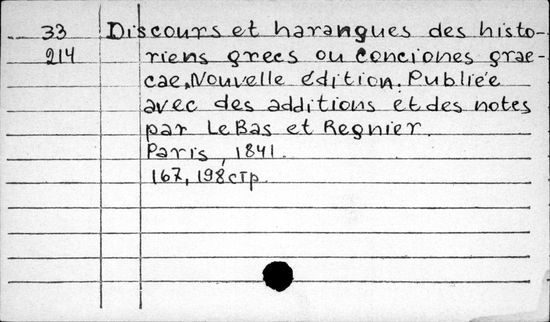 33 Discours et harangues des histo-
214 riens grecs ou Conciones grae-
cae. Nouvelle édition. Publiée
avec des additions et des notes
par LeBas et Regnier.
Paris, 1841.
167, 198 стр.